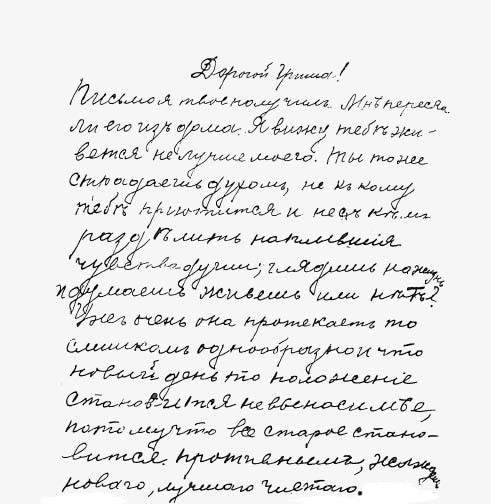 Дорогой Гриша!
Письмо я твое получилъ. Мнѣ пересла-
ли его изъ дома. Я вижу тебѣ жи-
вется не лучше моего. Ты тоже
страдаешь духомъ, не къ кому
тебѣ приютится и не съ кѣмъ
раздѣлить наплывшія
чувства души; глядишь на жизнь
и думаешь живешь или нѣтъ?
Ужъ очень она протекаетъ то
слишкомъ однообразно и что
новый день то положеніе
становится невыносимѣе,
потому что все старое стано-
вится противнымъ, жаждешь
новаго, лучшаго чистаго.